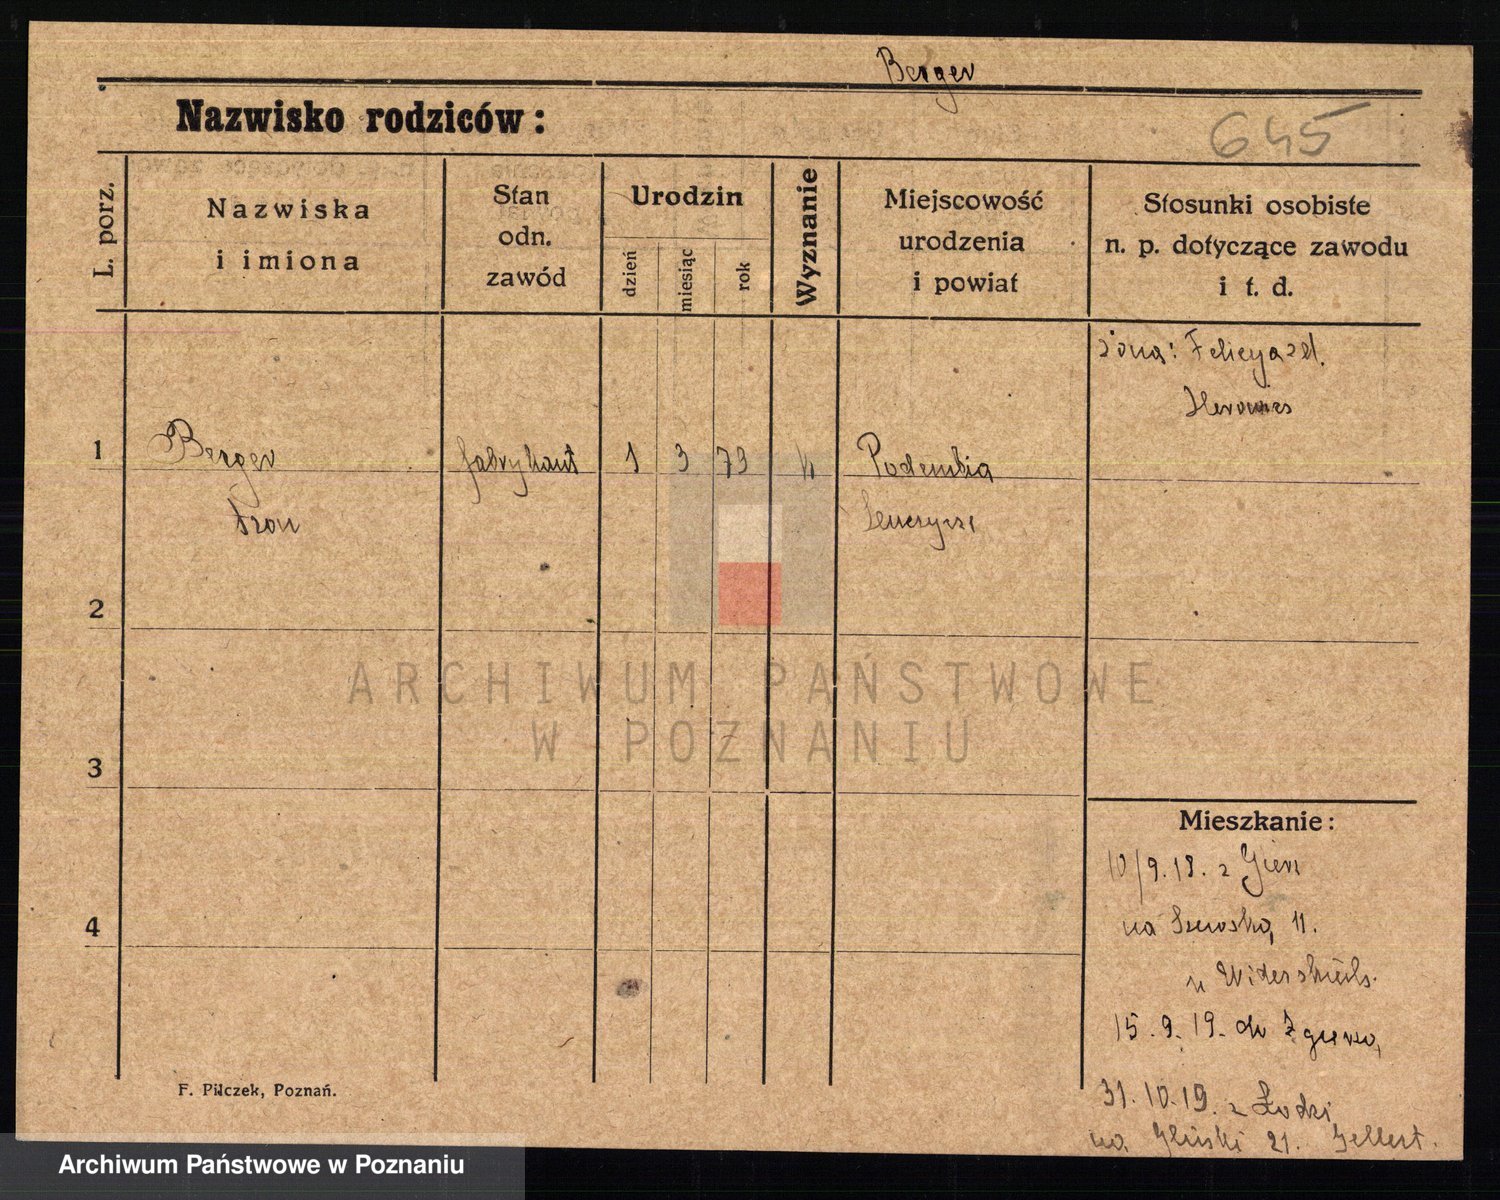 Berger
Nazwisko rodziców:
645
L. porz.
Nazwiska
i imiona
Stan
odn.
zawód
Urodzin
dzień
miesiąc
rok
Wyznanie
Miejscowość
urodzenia
i powiat
Stosunki osobiste
n. p. dotyczące zawodu
i t. d.
żona:
1
Berger
fabrykant
1
3
79
Podembia
2
3
4
Mieszkanie:
10/9.18. z
na Szewską 11.
u
15.9.19. do
31.10.19. z Łodzi
na 21. Gellert.
F. Pilczek, Poznań.
ARCHIWUM PAŃSTWOWE
W POZNANIU
Archiwum Państwowe w Poznaniu